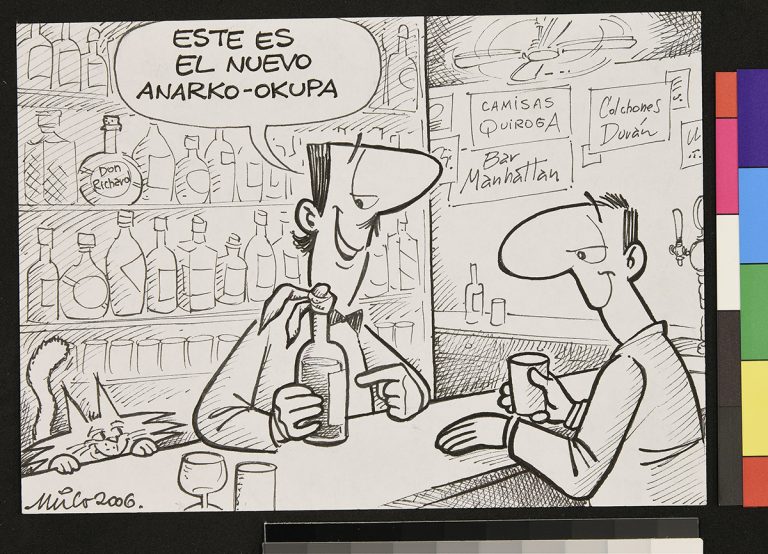 ESTE ES
EL NUEVO
ANARKO-OKUPA
CAMISAS
QUIROGA
Colchones
Duván
Bar
Manhattan
Don
Richard
2006.